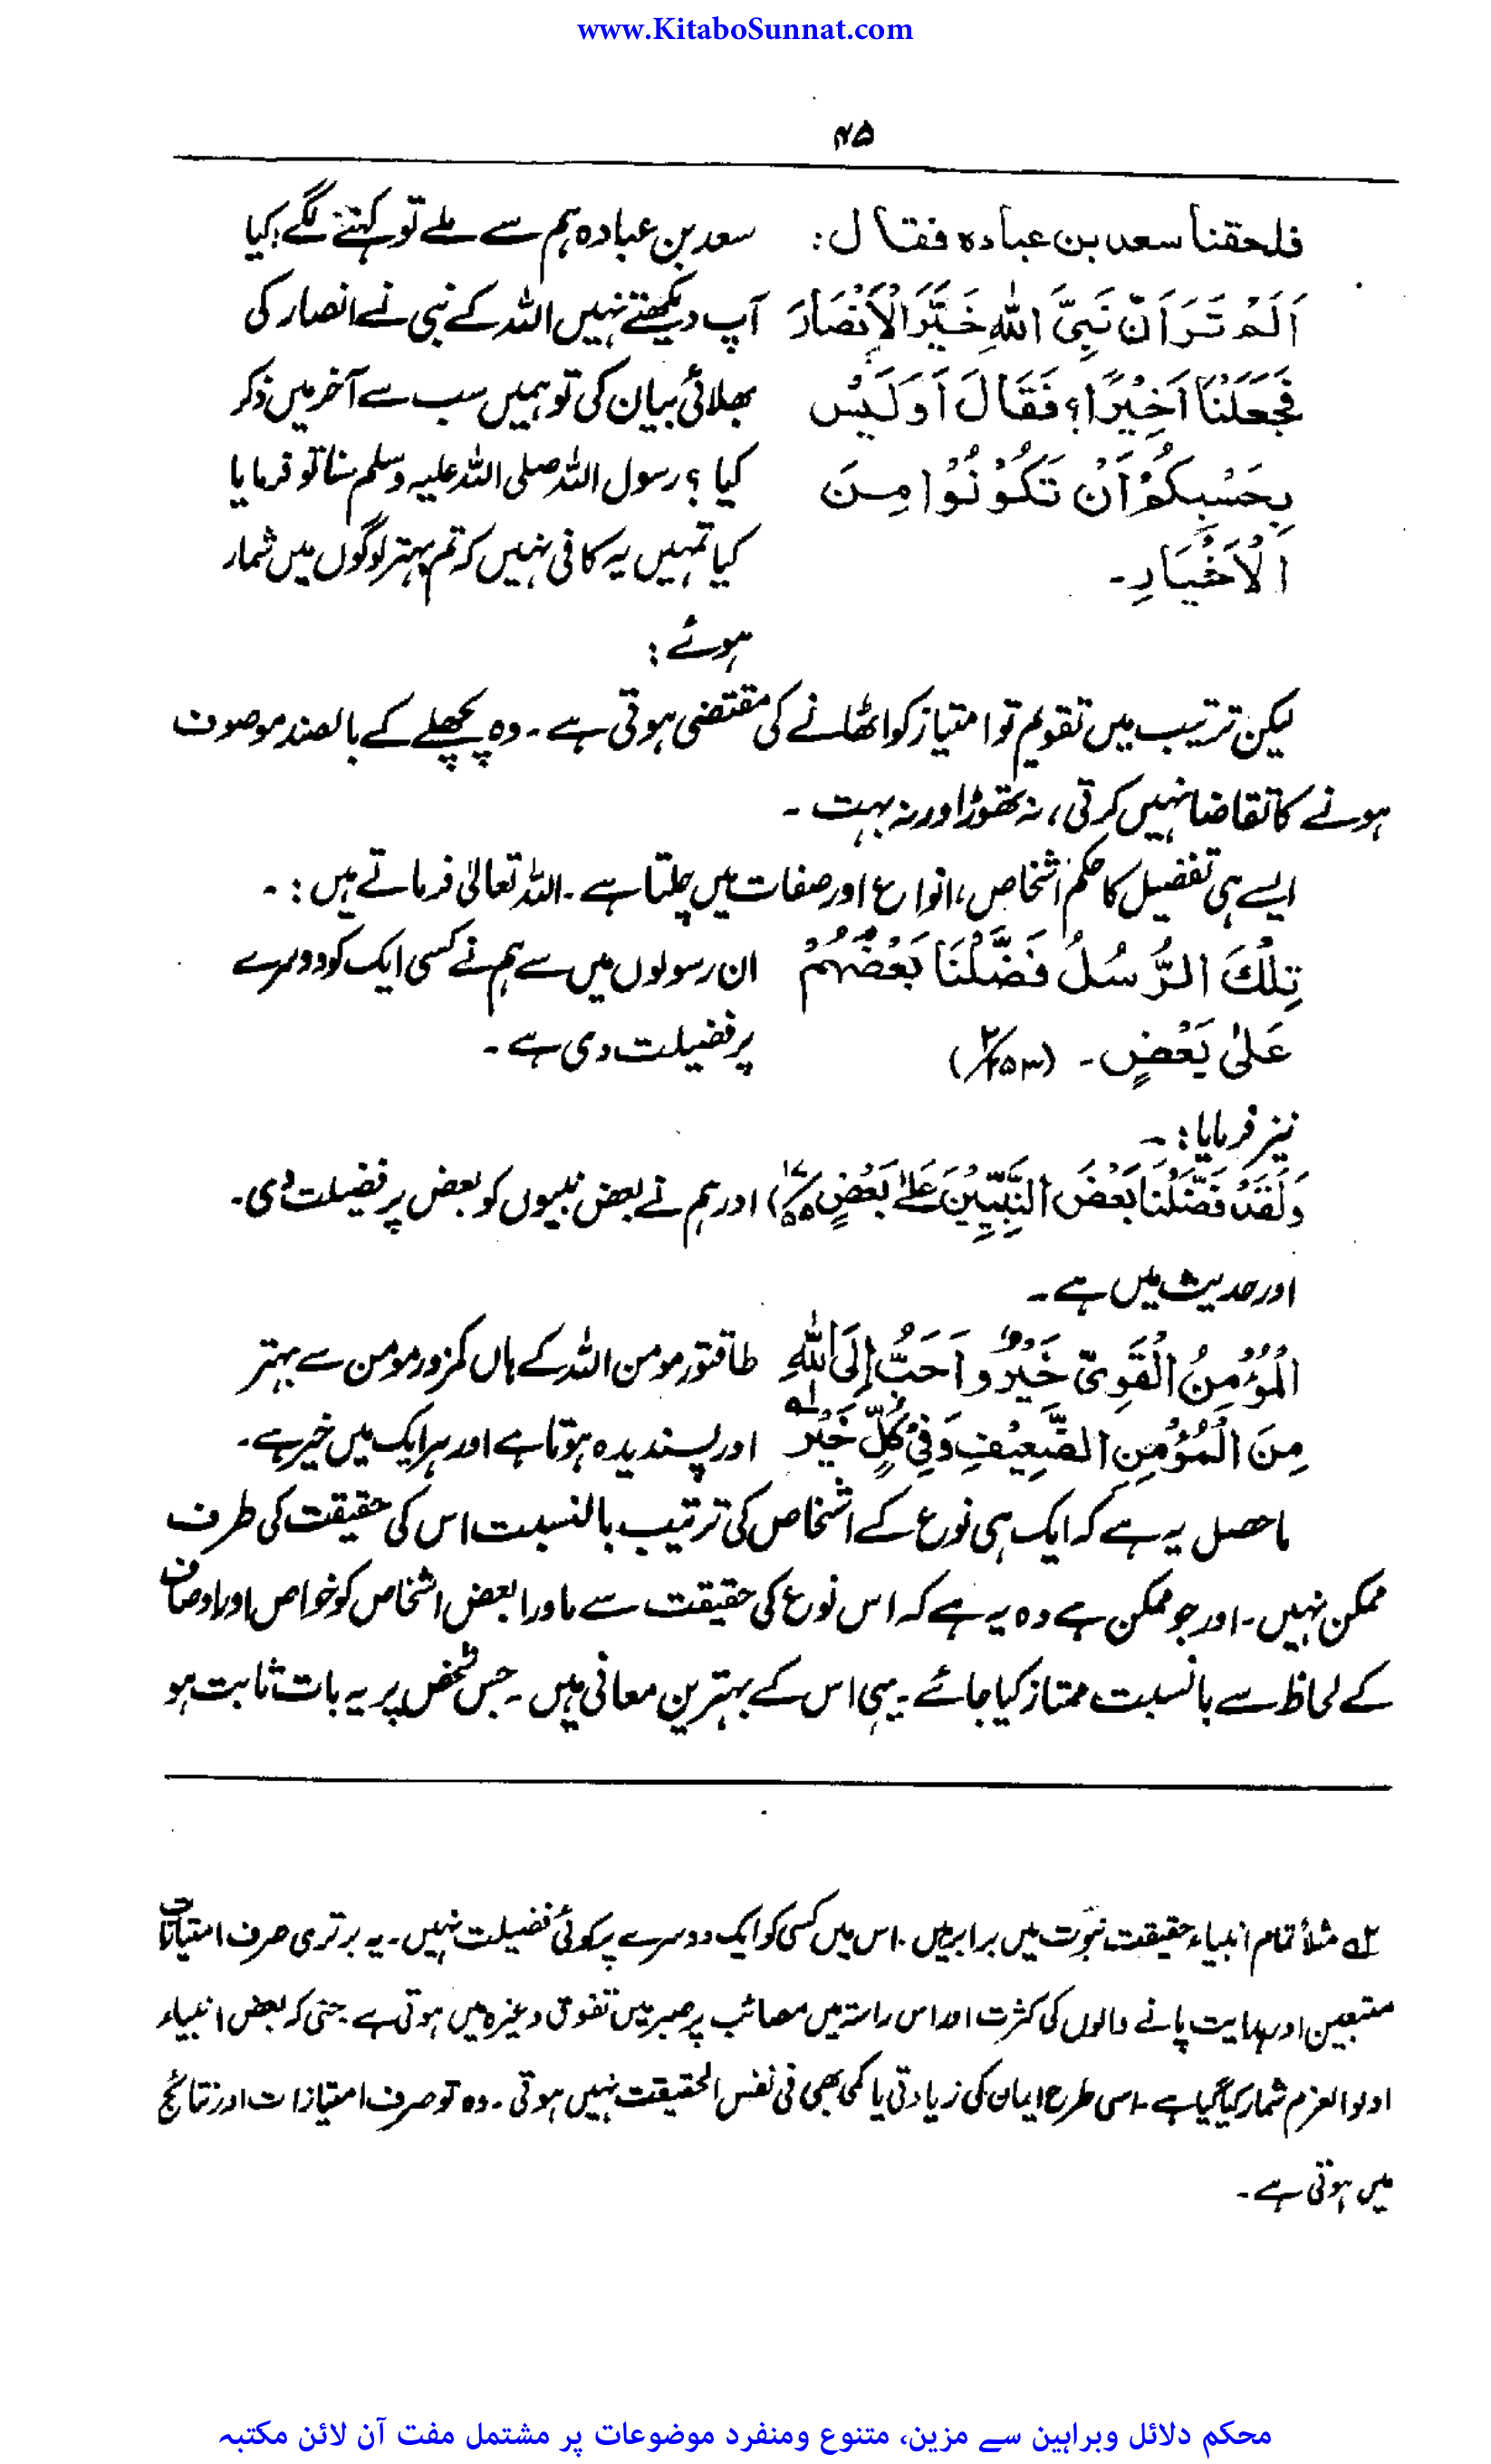 www.KitaboSunnat.com
۴۵
فلحقنا سعد بن عبادہ فقال: سعد بن عبادہ ہم سے ملے تو کہنے لگے؛ کیا
اَلَمْ تَرَ اَنَّ نَبِیَّ اللہِ خَیَّرَ الْاَنْصَارَ آپ دیکھتے نہیں اللہ کے نبی نے انصار کی
فَجَعَلَنَا اَخِیْرًا؟ فَقَالَ اَوَلَیْسَ بھلائی بیان کی تو ہمیں سب سے آخر میں ذکر
بِحَسْبِکُمْ اَنْ تَکُوْنُوْا مِنَ کیا؟ رسول اللہ صلی اللہ علیہ وسلم سنا تو فرمایا
الْاَخْیَارِ۔ کیا تمہیں یہ کافی نہیں کہ تم بہتر لوگوں میں شمار
ہوئے:
لیکن ترتیب میں تقویم تو امتیاز کو اٹھانے کی مقتضی ہوتی ہے۔ وہ پچھلے کے بالضد موصوف
ہونے کا تقاضا نہیں کرتی، نہ تھوڑا اور نہ بہت۔
ایسے ہی تفضیل کا حکم اشخاص، انواع اور صفات میں چلتا ہے۔ اللہ تعالیٰ فرماتے ہیں:۔
تِلْکَ الرُّسُلُ فَضَّلْنَا بَعْضَہُمْ ان رسولوں میں سے ہم نے کسی ایک کو دوسرے
عَلیٰ بَعْضٍ۔ (۲/۲۵۳) پر فضیلت دی ہے۔
نیز فرمایا:۔
وَلَقَدْ فَضَّلْنَا بَعْضَ النَّبِیّٖنَ عَلیٰ بَعْضٍ (۱۷/۵۵) اور ہم نے بعض نبیوں کو بعض پر فضیلت دی۔
اور حدیث میں ہے۔
اَلْمُؤْمِنُ الْقَوِیُّ خَیْرٌ وَّاَحَبُّ اِلَی اللہِ طاقتور مومن اللہ کے ہاں کمزور مومن سے بہتر
مِنَ الْمُؤْمِنِ الضَّعِیْفِ وَفِیْ کُلٍّ خَیْرٌ لہ اور پسندیدہ ہوتا ہے اور ہر ایک میں خیر ہے۔
ماحصل یہ ہے کہ ایک ہی نوع کے اشخاص کی ترتیب بالنسبت اس کی حقیقت کی طرف
ممکن نہیں۔ اور جو ممکن ہے وہ یہ ہے کہ اس نوع کی حقیقت سے ماورا بعض اشخاص کو خواص اور اوصاف
کے لحاظ سے بالنسبت ممتاز کیا جائے۔ یہی اس کے بہترین معانی ہیں۔ جس شخص پر یہ بات ثابت ہو
لہ مثلاً تمام انبیاء حقیقت نبوّت میں برابر ہیں۔ اس میں کسی کو ایک دوسرے پر کوئی فضیلت نہیں۔ یہ برتری صرف امتیازات
متبعین اور ہدایت پانے والوں کی کثرت اور اس راستہ میں مصائب پر صبر میں تفوق وغیرہ میں ہوتی ہے۔ حتیٰ کہ بعض انبیاء
اولوالعزم شمار کیا گیا ہے۔ اسی طرح ایمان کی زیادتی یا کمی بھی فی نفس الحقیقت نہیں ہوتی۔ وہ تو صرف امتیازات اور نتائج
میں ہوتی ہے۔
محکم دلائل وبراہین سے مزین، متنوع ومنفرد موضوعات پر مشتمل مفت آن لائن مکتبہ